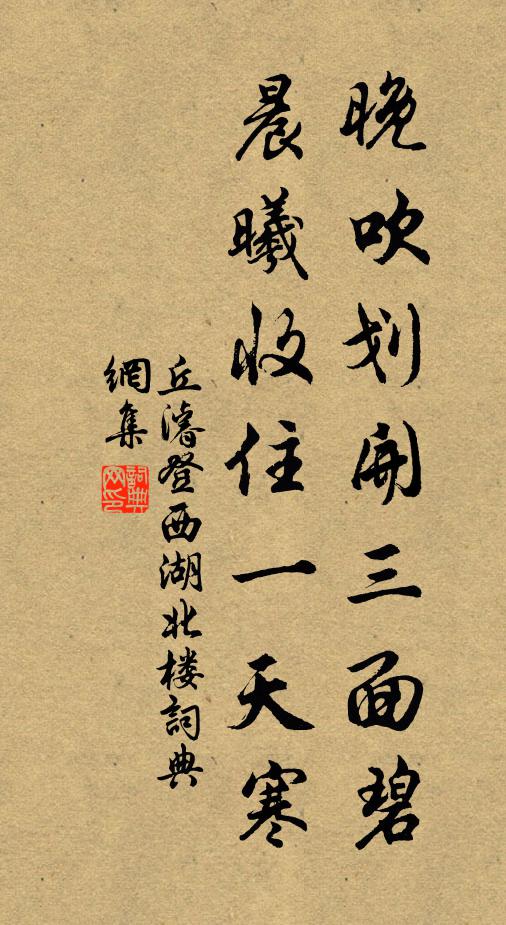 晚吹划開三面碧
晨曦收住一天寒
丘濬登西湖北楼詞典
網集
詞典網印